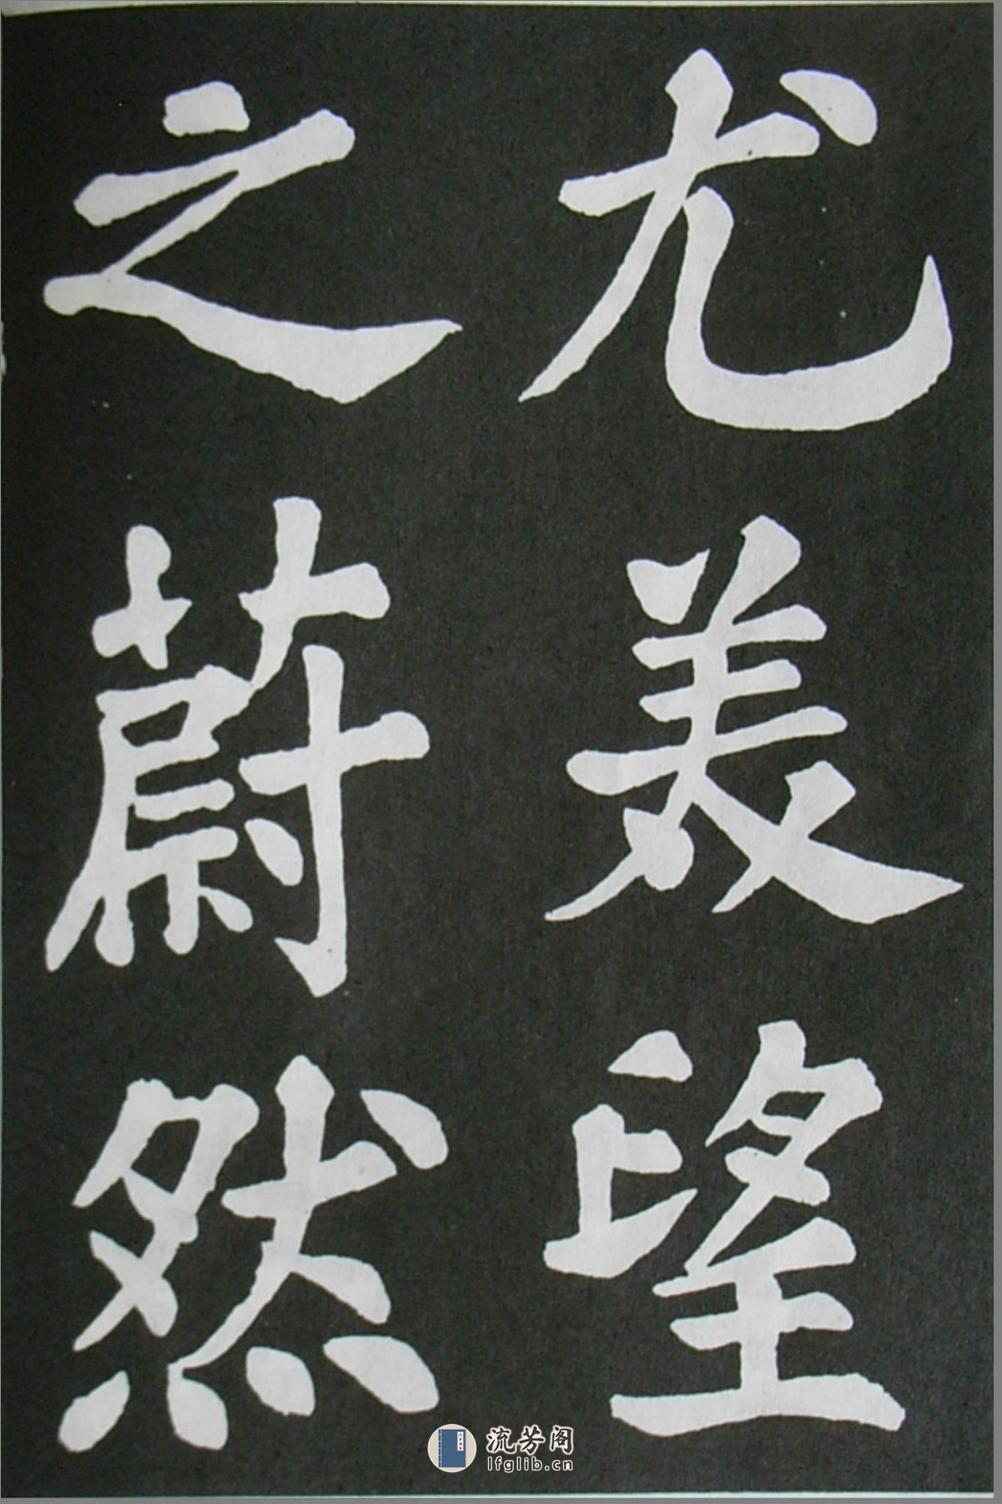 尤美望
之蔚然
流芳阁
lfglib.cn